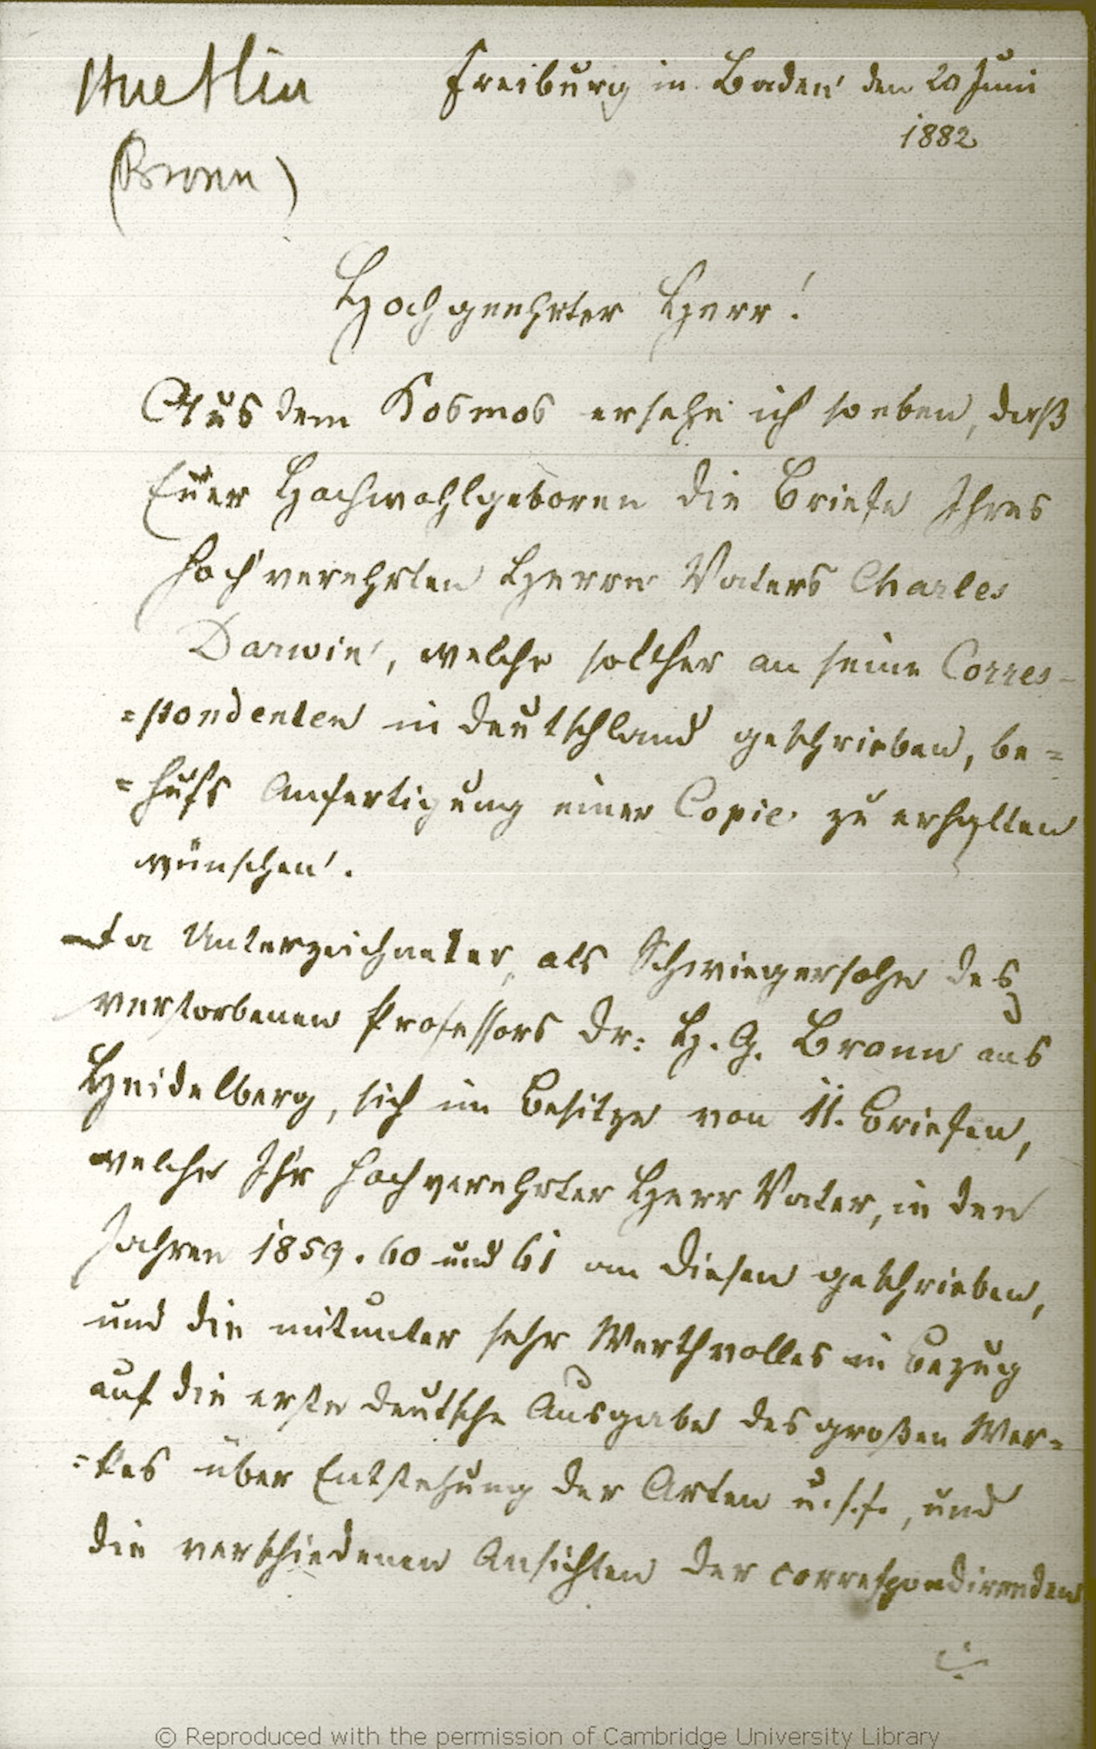 Huetlin
(Bronn)
Freiburg in Baden den 20 Juni
1882
Hochgeehrter Herr!
Aus dem Kosmos ersehe ich soeben, daß
Euer Hochwohlgeboren die Briefe Ihres
hochverehrten Herrn Vaters Charles
Darwin, welche solcher an seine Corres-
=pondenten in Deutschland geschrieben, be=
=hufs Anfertigung einer Copie zu erhalten
wünschen.
Da Unterzeichneter, als Schwiegersohn des
verstorbenen Professors Dr: H. G. Bronn aus
Heidelberg, sich im Besitze von 11. Briefen,
welche Ihr hochverehrter Herr Vater, in den
Jahren 1859. 60 und 61 an diesen geschrieben,
und die mitunter sehr Werthvolles in Bezug
auf die erste deutsche Ausgabe des großen Wer=
=kes über Entstehung der Arten u.s.f., und
die verschiedenen Ansichten der correspondirenden
© Reproduced with the permission of Cambridge University Library